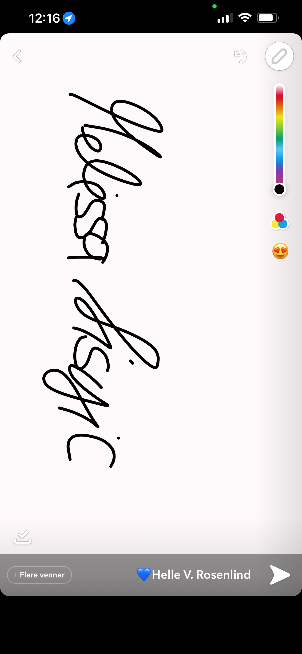 12:16
Melissa
+ Flere venner
💙Helle V. Rosenlind